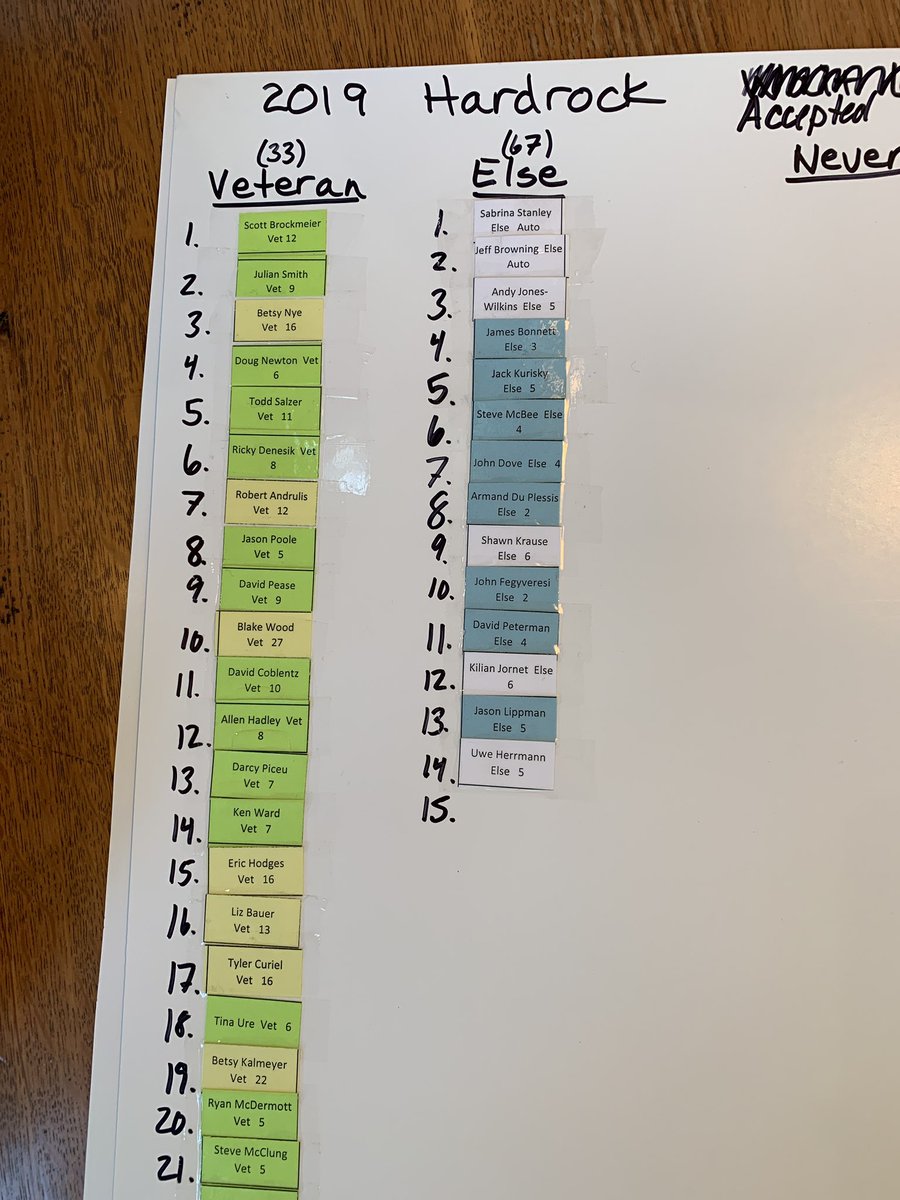 2019 Hardrock
Accepted
(33)
Veteran
1.
Scott Brockmeier
Vet 12
2.
Julian Smith
Vet 9
3.
Betsy Nye
Vet 16
4.
Doug Newton Vet
6
5.
Todd Salzer
Vet 11
6.
Ricky Denesik Vet
8
7.
Robert Andrulis
Vet 12
8.
Jason Poole
Vet 5
9.
David Pease
Vet 9
10.
Blake Wood
Vet 27
11.
David Coblentz
Vet 10
12.
Allen Hadley Vet
8
13.
Darcy Piceu
Vet 7
14.
Ken Ward
Vet 7
15.
Eric Hodges
Vet 16
16.
Liz Bauer
Vet 13
17.
Tyler Curiel
Vet 16
18.
Tina Ure Vet 6
19.
Betsy Kalmeyer
Vet 22
20.
Ryan McDermott
Vet 5
21.
Steve McClung
Vet 5
(67)
Else
1.
Sabrina Stanley
Else Auto
2.
Jeff Browning Else
Auto
3.
Andy Jones-
Wilkins Else 5
4.
James Bonnett
Else 3
5.
Jack Kurisky
Else 5
6.
Steve McBee Else
4
7.
John Dove Else 4
8.
Armand Du Plessis
Else 2
9.
Shawn Krause
Else 6
10.
John Fegyveresi
Else 2
11.
David Peterman
Else 4
12.
Kilian Jornet Else
6
13.
Jason Lippman
Else 5
14.
Uwe Herrmann
Else 5
15.
Never